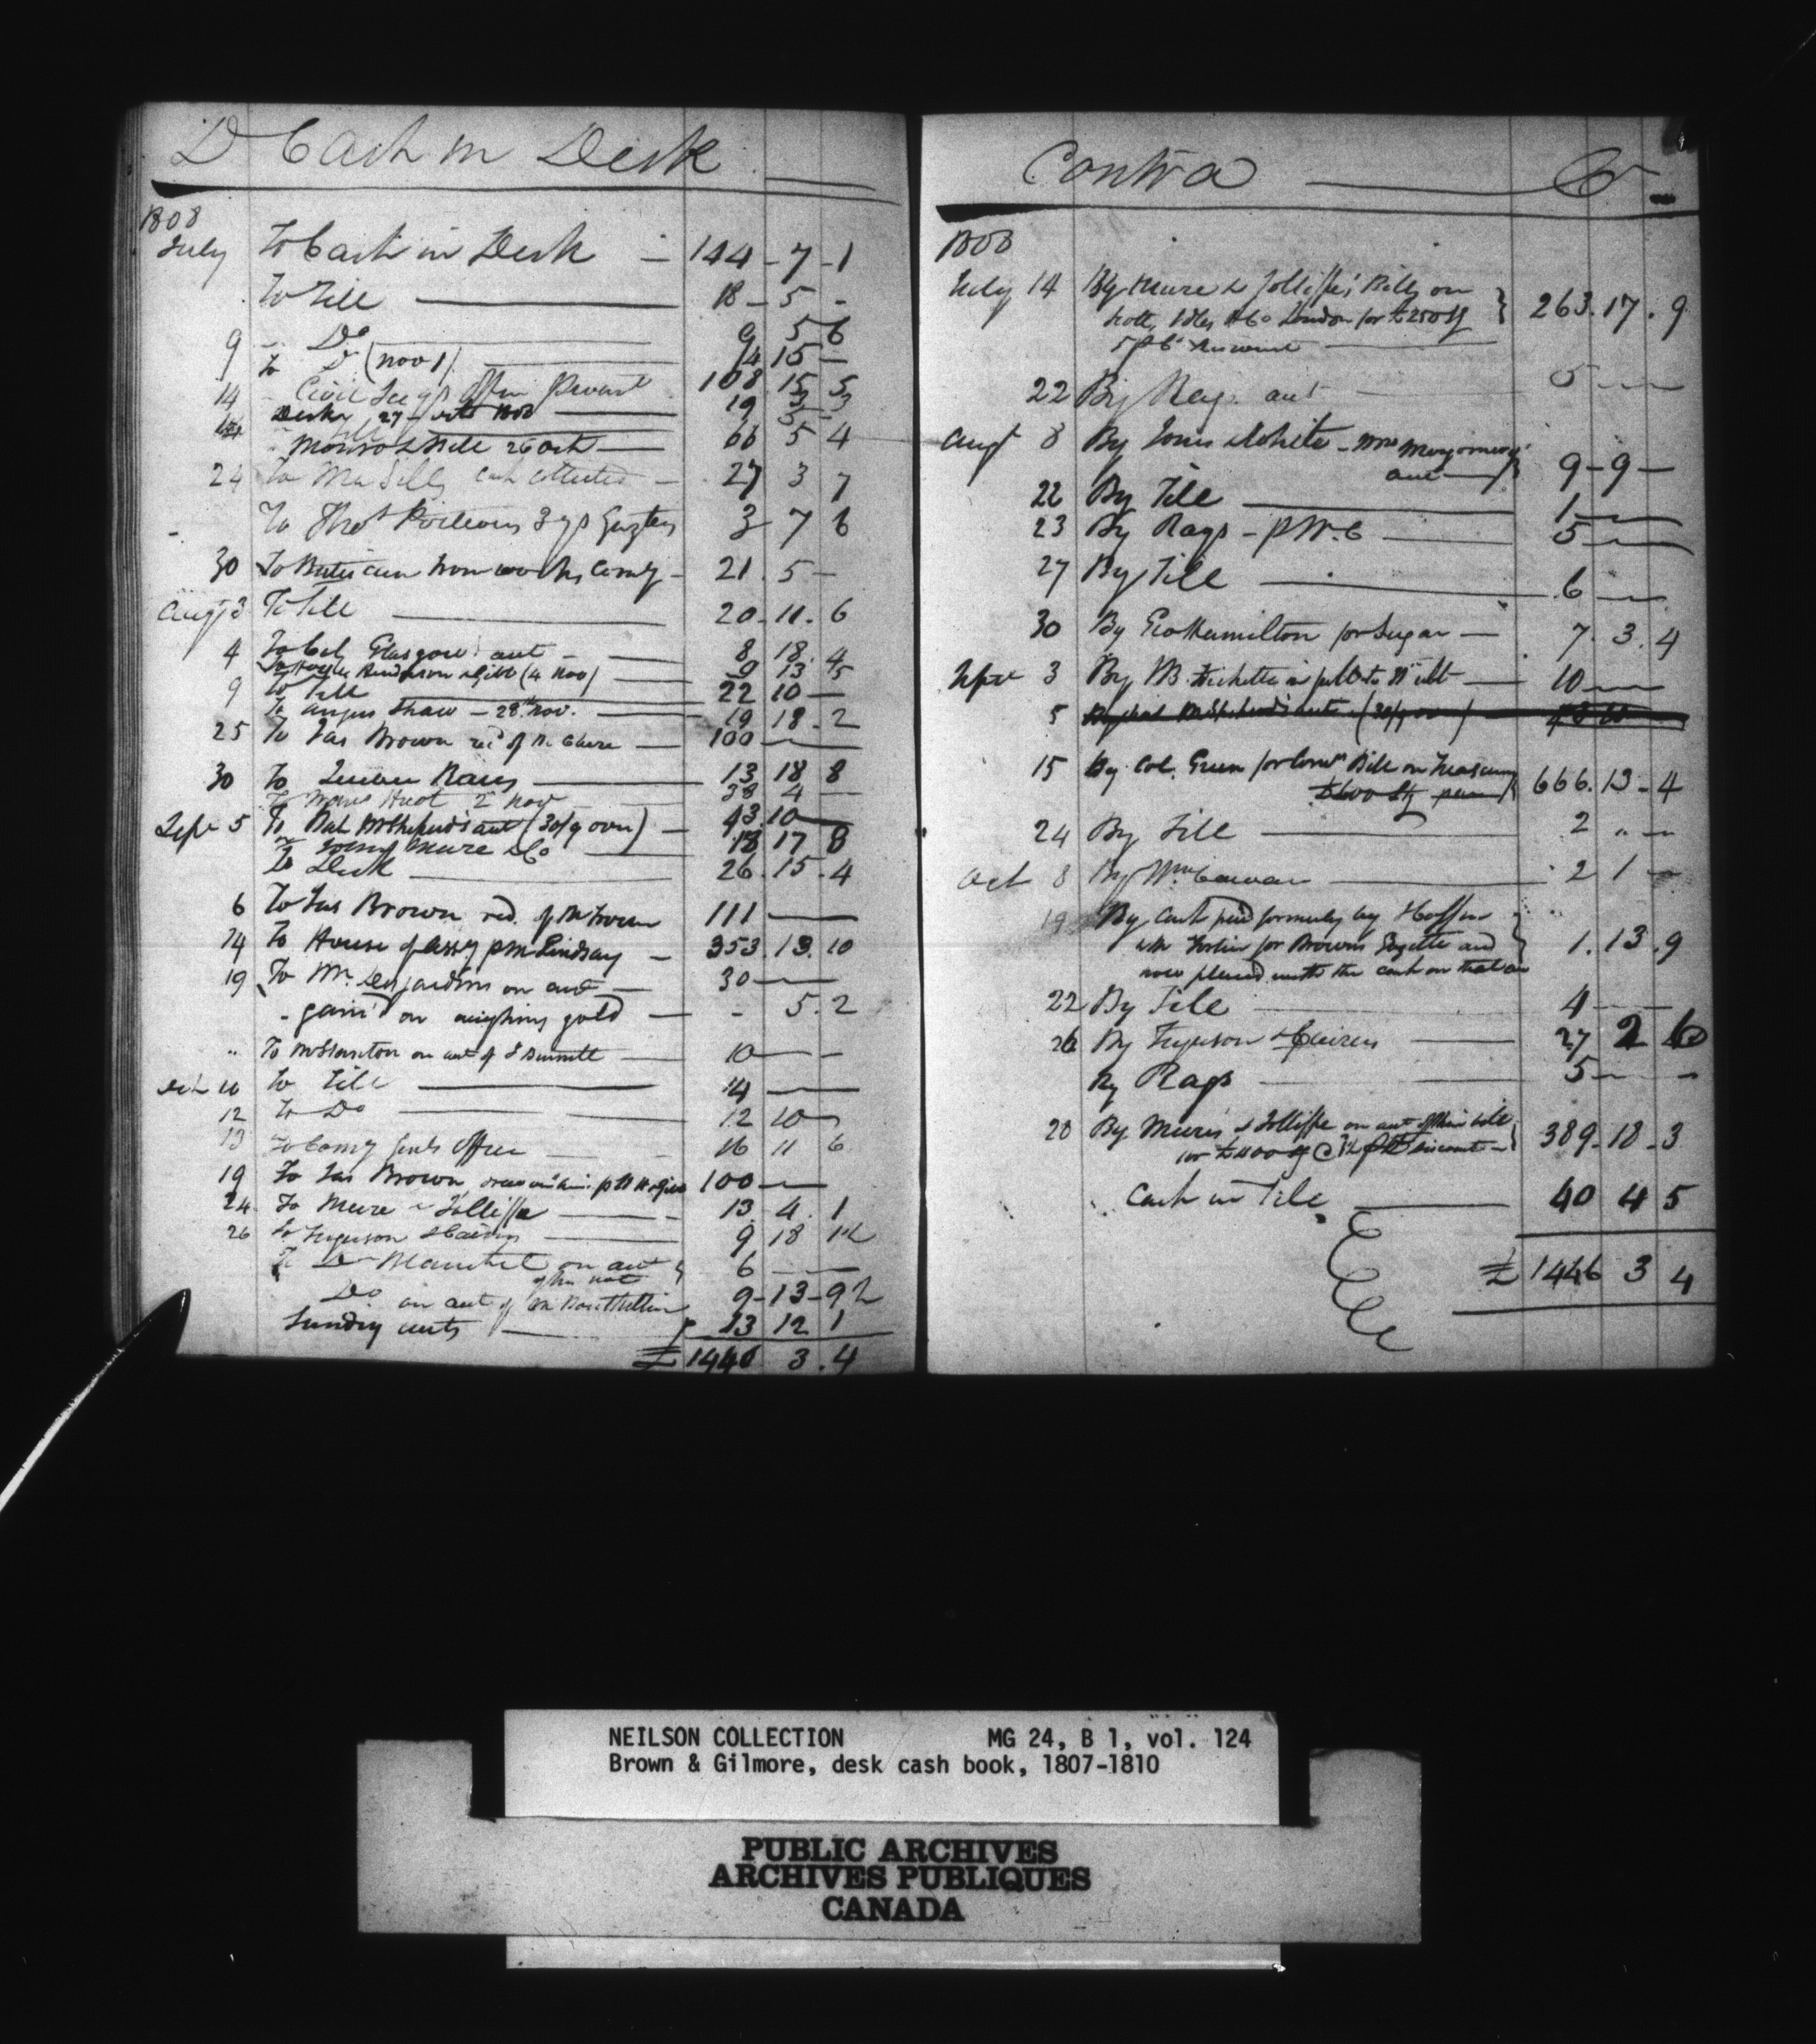 Dr Cash in Desk
1808
July To Cash in Desk 144 - 7 - 1
To Till 18 - 5 -
9 Do 9 5 6
To Do (Nov 1) 14 15 -
14 Civil Secys Office 108 15 5
19
Monro & Bell 26 Oct 66 5 4
24 To cash collected 27 3 7
To Thos 3 yrs 3 7 6
30 To Iron works Comy 21 . 5 -
Augt 3 To Till 20 . 11 . 6
4 To Col. Glasgow's act 8 18 . 4
(4 Nov) 9 13 5
9 To Till 22 10 -
To Angus Shaw - 28th Nov. 19 18 . 2
25 To Jas Brown recd of Mr 100
30 To 13 18 8
To Huot 2 Nov 38 4 -
Sepr 5 To Bal McShepherd's act (30/9 over) 43 . 10
To Mure & Co 18 17 8
To Desk 26 . 15 . 4
6 To Jas Brown red. of Mr 111
14 To House of Assy p Mr Lindsay 353 . 13 . 10
19 To Mr Desjardins on act 30
gain'd on weighing gold - 5 . 2
" To on act of 10 - -
Oct 10 To Till 14
12 To Do 12 10
13 To Comy Genls Office 16 11 6
19 To Jas Brown 100
24 To Mure & Jolliffe 13 . 4 . 1
26 To Ferguson & Cairns 9 18 1½
To Dr Blanchet on act 6
of his note
Do on act of Mr 9 - 13 - 9½
Sundry acts 13 12 1
£ 1446 3 . 4
Contra Cr
1808
July 14 By Mure & Jolliffe's Bills on
Scott, Idles & Co London for £250 Stg 263 . 17 . 9
5 p Ct discount
22 By Rags act 5
Augt 8 By Jones White - Mrs Montgomery's
act 9 - 9 -
22 By Till 1
23 By Rags - p W. C 5
27 By Till 6
30 By Geo Hamilton for Sugar 7 . 3 . 4
Sepr 3 By Ricketts in full to 31 ult 10
5 By bal McShepherd's act (30/9 over) 43 10
15 By Col. Green for Bill on Treasury
£600 Stg 666 . 13 - 4
24 By Till 2 " -
Oct 8 By Wm Cowan 2 1 -
19 By Cash paid formerly by
for Browns Gazette and 1 . 13 . 9
now placed with the cash on that act
22 By Till 4
26 By Ferguson & Cairns 27 2 6
By Rags 5
28 By Mure & Jolliffe on act of their bill
for £400 Stg discount 389 . 18 . 3
Cash in Till 40 4 5
£ 1446 3 4
NEILSON COLLECTION MG 24, B 1, vol. 124
Brown & Gilmore, desk cash book, 1807-1810
PUBLIC ARCHIVES
ARCHIVES PUBLIQUES
CANADA